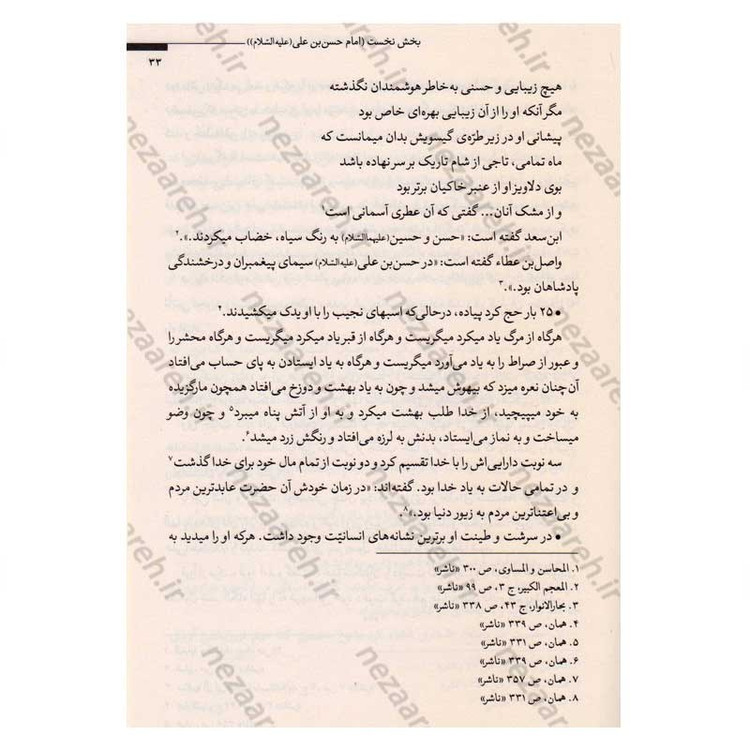 بخش نخست (امام حسن‌بن علی(علیه‌السّلام))
۳۳
هیچ زیبایی و حسنی به خاطر هوشمندان نگذشته
مگر آنکه او را از آن زیبایی بهره‌ای خاص بود
پیشانی او در زیر طرّه‌ی گیسویش بدان میمانست که
ماه تمامی، تاجی از شام تاریک بر سر نهاده باشد
بوی دلاویز او از عنبر خاکیان برتر بود
و از مشک آنان... گفتی که آن عطری آسمانی است۱
ابن‌سعد گفته است: «حسن و حسین(علیهما‌السّلام) به رنگ سیاه، خضاب میکردند.»۲.
واصل‌بن عطاء گفته است: «در حسن‌بن علی(علیه‌السّلام) سیمای پیغمبران و درخشندگی
پادشاهان بود.»۳.
• ۲۵ بار حج کرد پیاده، درحالی‌که اسبهای نجیب را با او یدک میکشیدند.۴
هرگاه از مرگ یاد میکرد میگریست و هرگاه از قبر یاد میکرد میگریست و هرگاه محشر را
و عبور از صراط را به یاد می‌آورد میگریست و هرگاه به یاد ایستادن به پای حساب می‌افتاد
آن‌چنان نعره میزد که بیهوش میشد و چون به یاد بهشت و دوزخ می‌افتاد همچون مارگزیده
به خود میپیچید، از خدا طلب بهشت میکرد و به او از آتش پناه میبرد۵ و چون وضو
میساخت و به نماز می‌ایستاد، بدنش به لرزه می‌افتاد و رنگش زرد میشد۶.
سه نوبت دارایی‌اش را با خدا تقسیم کرد و دو نوبت از تمام مال خود برای خدا گذشت۷
و در تمامی حالات به یاد خدا بود. گفته‌اند: «در زمان خودش آن حضرت عابدترین مردم
و بی‌اعتناترین مردم به زیور دنیا بود.»۸.
• در سرشت و طینت او برترین نشانه‌های انسانیّت وجود داشت. هرکه او را میدید به
۱. المحاسن و المساوی، ص ۳۰۰ «ناشر»
۲. المعجم الکبیر، ج ۳، ص ۹۹ «ناشر»
۳. بحارالانوار، ج ۴۳، ص ۳۳۸ «ناشر»
۴. همان، ص ۳۳۹ «ناشر»
۵. همان، ص ۳۳۱ «ناشر»
۶. همان، ص ۳۳۹ «ناشر»
۷. همان، ص ۳۵۷ «ناشر»
۸. همان، ص ۳۳۱ «ناشر»
nezaareh.ir